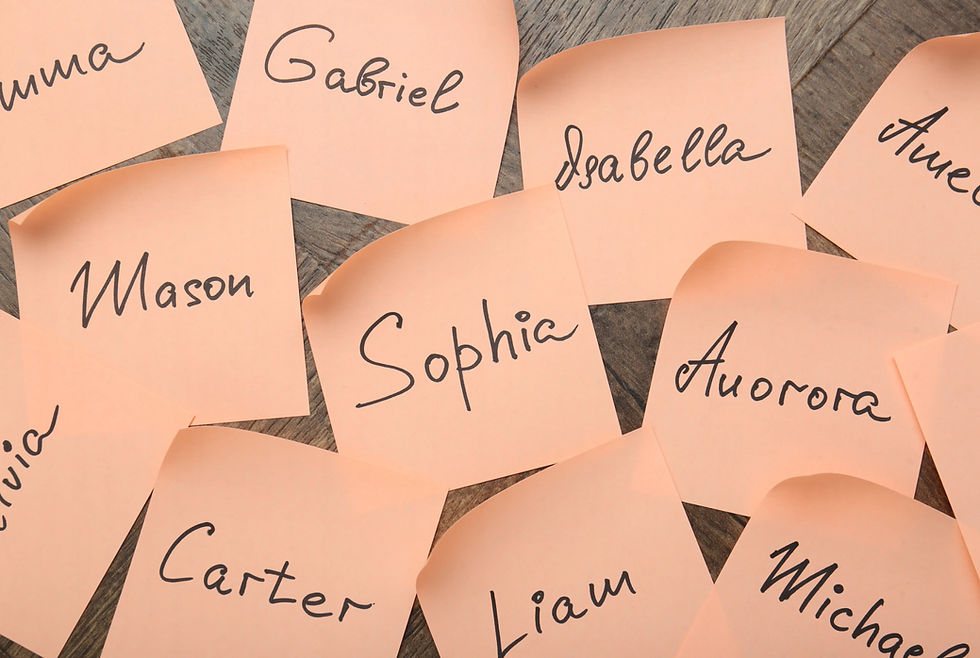 mma
Gabriel
Isabella
Ame
Mason
Sophia
Auorora
via
Carter
Liam
Michael